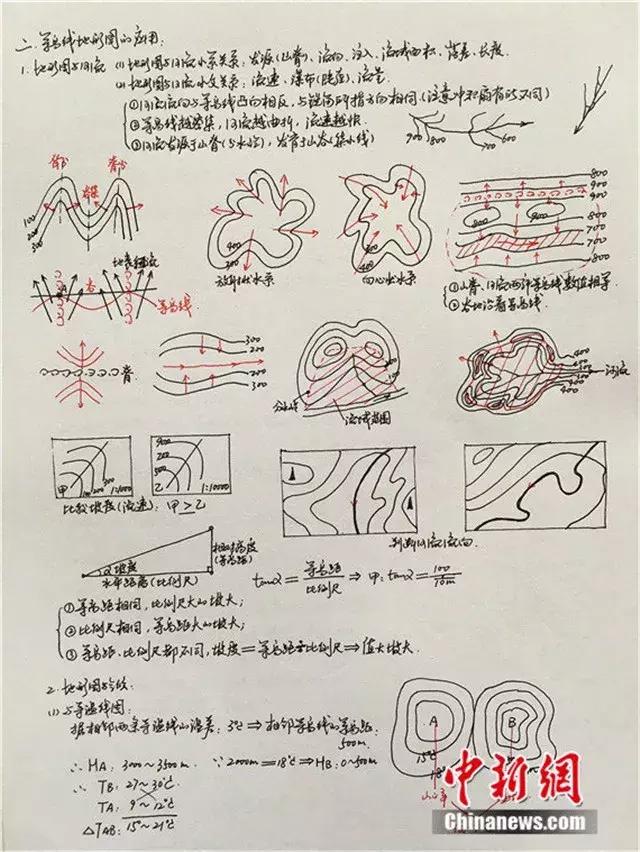 二.等高线地形图的应用:
1.地形图与河流 (1)地形图与河流水系关系:发源(山脊)、流向、注入、流域面积、落差、长度.
(2)地形图与河流水文关系:流速、瀑布(陡崖)、流量
①河流流向与等高线凸向相反,与
方向相同(注意冲积扇有所不同)
②等高线越密集,河流越曲折,流速越快.
③河流发源于山脊(分水线),发育于山谷(集水线)
900 800 700 600
脊 谷 脊
100
200
300
地表径流
谷
等高线
400
200
放射状水系
200
400
向心状水系
800
900
900
800
700
700
800
①山脊、河流两侧等高线数值相等
②谷地沿着等高线.
脊
300
200
200
300
分水线
流域范围
400
400
400
河流
甲 100 200 300 1:1000
900
200
500
乙 1:10000
比较坡度(流速):甲>乙
判断河流流向.
α坡度
水平距离(比例尺)
相对高度
(等高距)
tanα=等高距/比例尺⇒甲:tanα=100/10m
①等高距相同,比例尺大的坡大;
②比例尺相同,等高距大的坡大;
③等高距、比例尺都不同,坡度=等高距÷比例尺⇒值大坡大.
2.地形图与气候
(1)与等温线图:
据相邻两条等温线的温差:3℃⇒相邻等高线的等高距:
500m.
∴HA:3000~3500m. ∵2000m=18℃⇒HB:0~500m
∴TB:27~30℃
TA:9~12℃
△TAB:15~21℃
A B
15℃
18℃
中新网
Chinanews.com